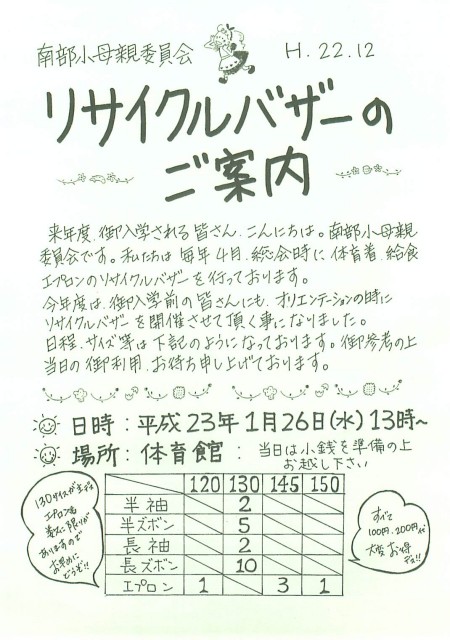 南部小母親委員会
H.22.12
リサイクルバザーの
ご案内
来年度、御入学される皆さん、こんにちは。南部小母親
委員会です。私たちは毎年4月、総会時に体育着、給食
エプロンのリサイクルバザーを行っております。
今年度は、御入学前の皆さんにも、オリエンテーションの時に
リサイクルバザーを開催させて頂く事になりました。
日程、サイズ等は下記のようになっております。御参考の上
当日の御利用、お待ち申し上げております。
日時：平成23年1月26日(水)13時～
場所：体育館：当日は小銭を準備の上
お越し下さい
120 130 145 150
半袖 2
半ズボン 5
長袖 2
長ズボン 10
エプロン 1 3 1
130サイズが主デス
エプロンも
数に限りが
ありますので
お早めに
どうぞ!!
すべて
100円、200円
大変お得
デス!!